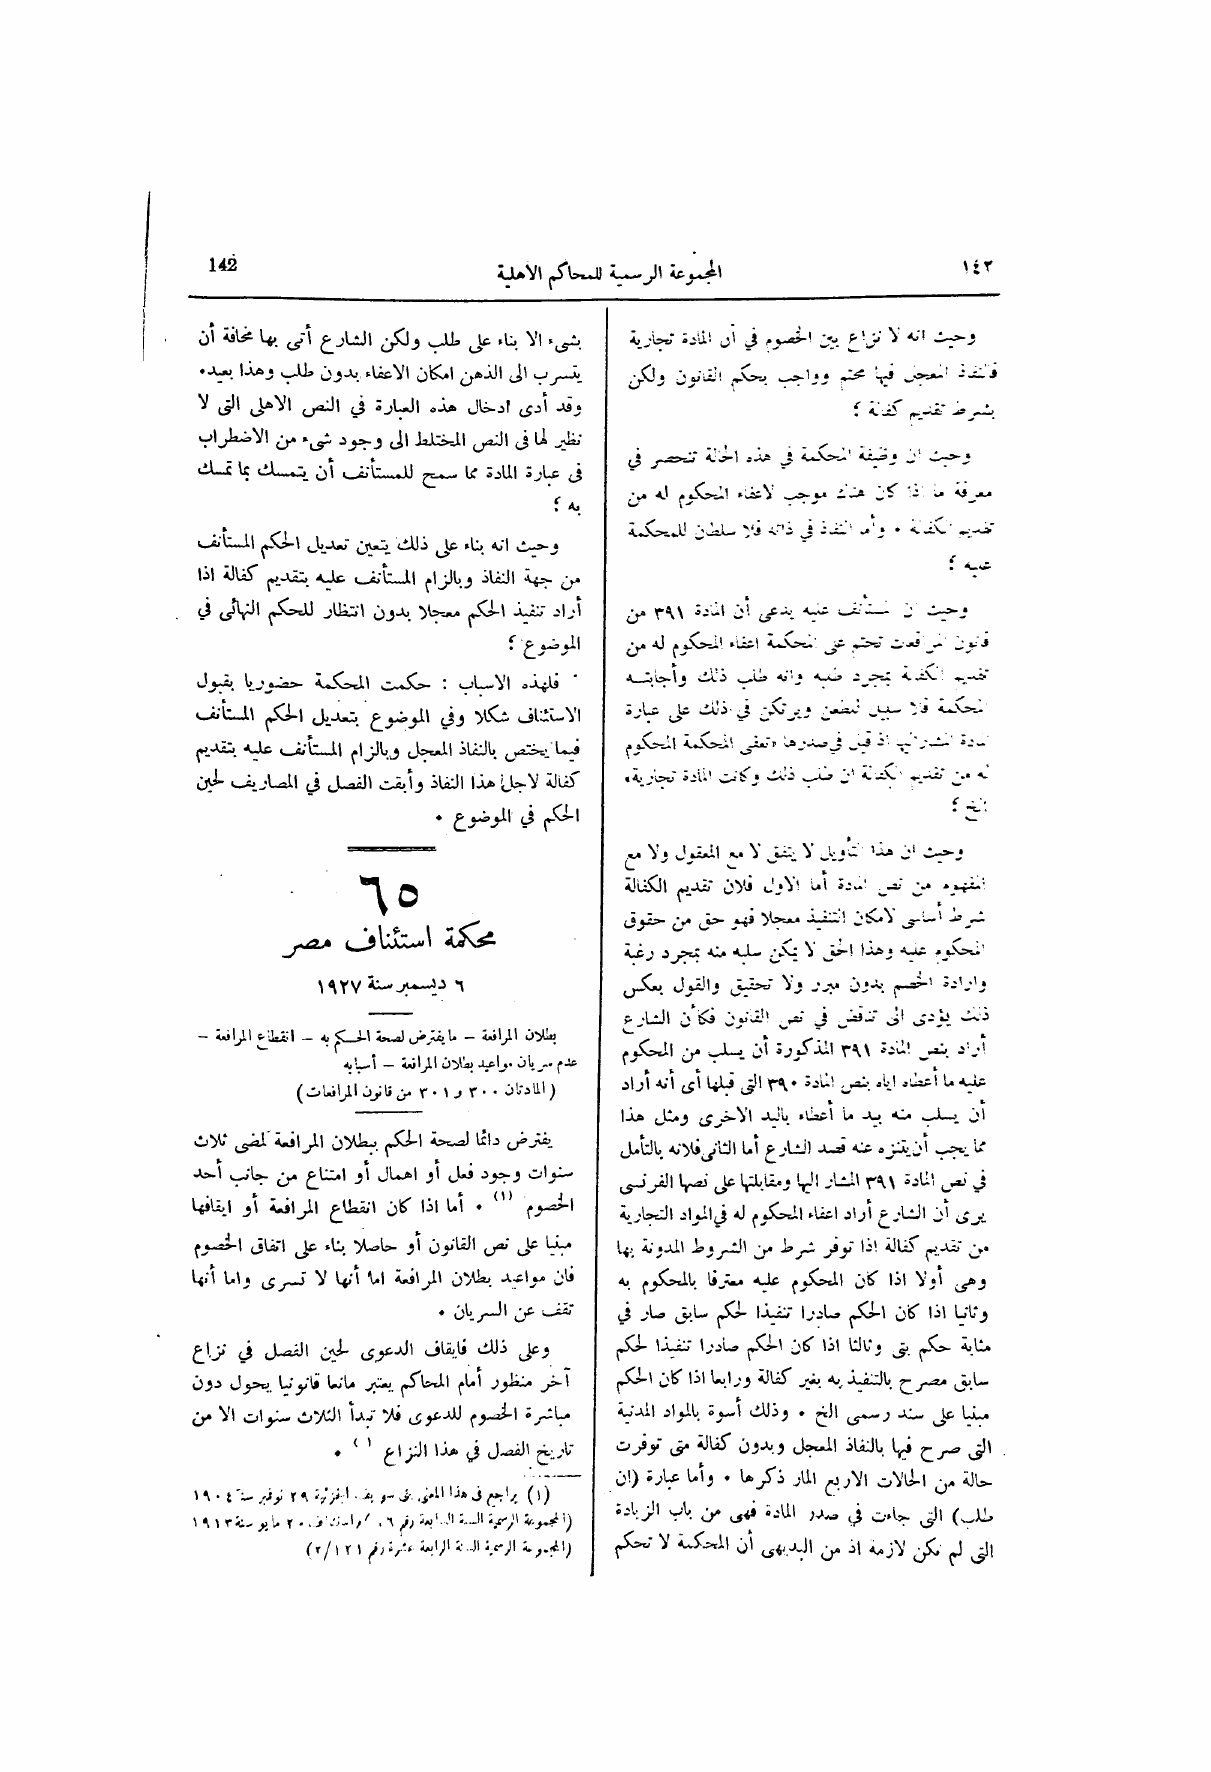 ١٤٢
المجموعة الرسمية للمحاكم الاهلية
142
وحيث انه لا نزاع بين الخصوم في أن المادة تجارية
فالنفاذ المعجل فيها محتم وواجب بحكم القانون ولكن
بشرط تقديم كفالة ؛
وحيث ان وظيفة المحكمة في هذه الحالة تنحصر في
معرفة ما اذا كان هناك موجب لاعفاء المحكوم له من
تقديم الكفالة ٠ وأما النفاذ في ذاته فلا سلطان للمحكمة
عليه ؛
وحيث ان المستأنف عليه يدعى أن المادة ٣٩١ من
قانون المرافعات تحتم على المحكمة اعفاء المحكوم له من
تقديم الكفالة بمجرد طلبه وانه طلب ذلك وأجابته
المحكمة فلا سبيل للطعن ويرتكن في ذلك على عبارة
المادة المشار اليها اذ قيل في صدرها «تعفى المحكمة المحكوم
له من تقديم الكفالة ان طلب ذلك وكانت المادة تجارية»
الخ ؛
وحيث ان هذا التأويل لا يتفق لا مع المعقول ولا مع
المفهوم من نص المادة أما الاول فلان تقديم الكفالة
شرط أساسى لامكان التنفيذ معجلا فهو حق من حقوق
المحكوم عليه وهذا الحق لا يمكن سلبه منه بمجرد رغبة
وارادة الخصم بدون مبرر ولا تحقيق والقول بعكس
ذلك يؤدى الى تناقض في نص القانون فكأن الشارع
أراد بنص المادة ٣٩١ المذكورة أن يسلب من المحكوم
عليه ما أعطاه اياه بنص المادة ٣٩٠ التى قبلها أى أنه أراد
أن يسلب منه بيد ما أعطاه باليد الاخرى ومثل هذا
مما يجب أن يتنزه عنه قصد الشارع أما الثانى فلانه بالتأمل
في نص المادة ٣٩١ المشار اليها ومقابلتها على نصها الفرنسى
يرى أن الشارع أراد اعفاء المحكوم له في المواد التجارية
من تقديم كفالة اذا توفر شرط من الشروط المدونة بها
وهى أولا اذا كان المحكوم عليه معترفا بالمحكوم به
وثانيا اذا كان الحكم صادرا تنفيذا لحكم سابق صار في
مثابة حكم بتى وثالثا اذا كان الحكم صادرا تنفيذا لحكم
سابق مصرح بالتنفيذ به بغير كفالة ورابعا اذا كان الحكم
مبنيا على سند رسمى الخ ٠ وذلك أسوة بالمواد المدنية
التى صرح فيها بالنفاذ المعجل وبدون كفالة متى توفرت
حالة من الحالات الاربع المار ذكرها ٠ وأما عبارة (ان
طلب) التى جاءت في صدر المادة فهى من باب الزيادة
التى لم تكن لازمة اذ من البديهى أن المحكمة لا تحكم
بشىء الا بناء على طلب ولكن الشارع أتى بها مخافة أن
يتسرب الى الذهن امكان الاعفاء بدون طلب وهذا بعيد٠
وقد أدى ادخال هذه العبارة في النص الاهلى التى لا
نظير لها فى النص المختلط الى وجود شىء من الاضطراب
فى عبارة المادة مما سمح للمستأنف أن يتمسك بما تمسك
به ؛
وحيث انه بناء على ذلك يتعين تعديل الحكم المستأنف
من جهة النفاذ وبالزام المستأنف عليه بتقديم كفالة اذا
أراد تنفيذ الحكم معجلا بدون انتظار للحكم النهائى في
الموضوع ؛
فلهذه الاسباب : حكمت المحكمة حضوريا بقبول
الاستئناف شكلا وفي الموضوع بتعديل الحكم المستأنف
فيما يختص بالنفاذ المعجل وبالزام المستأنف عليه بتقديم
كفالة لاجل هذا النفاذ وأبقت الفصل في المصاريف لحين
الحكم في الموضوع ٠
٦٥
محكمة استئناف مصر
٦ ديسمبر سنة ١٩٢٧
بطلان المرافعة – ما يفترض لصحة الحكم به – انقطاع المرافعة –
عدم سريان مواعيد بطلان المرافعة – أسبابه
(المادتان ٣٠٠ و ٣٠١ من قانون المرافعات)
يفترض دائما لصحة الحكم ببطلان المرافعة لمضى ثلاث
سنوات وجود فعل أو اهمال أو امتناع من جانب أحد
الخصوم (١) ٠ أما اذا كان انقطاع المرافعة أو ايقافها
مبنيا على نص القانون أو حاصلا بناء على اتفاق الخصوم
فان مواعيد بطلان المرافعة اما أنها لا تسرى واما أنها
تقف عن السريان ٠
وعلى ذلك فايقاف الدعوى لحين الفصل في نزاع
آخر منظور أمام المحاكم يعتبر مانعا قانونيا يحول دون
مباشرة الخصوم للدعوى فلا تبدأ الثلاث سنوات الا من
تاريخ الفصل في هذا النزاع ٠
(١) يراجع فى هذا المعنى بنى سويف الجزئية ٢٩ نوفمبر سنة ١٩٠٤
(المجموعة الرسمية السنة السابعة رقم واستئناف ٢٠ مايو سنة ١٩١٣
(المجموعة الرسمية السنة الرابعة عشرة رقم ٢/١٢١)